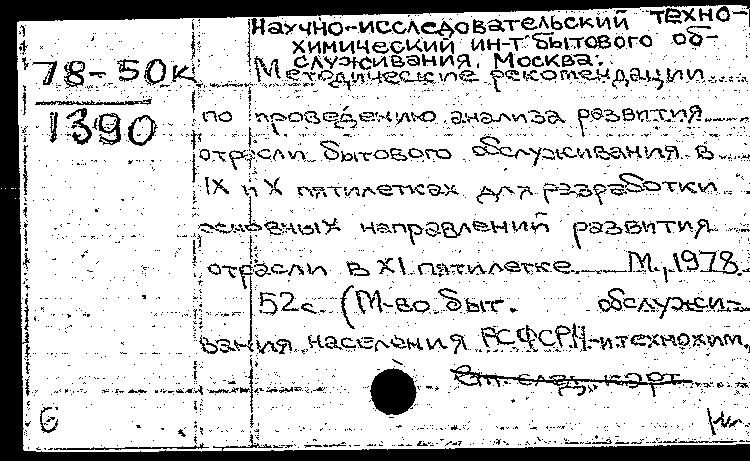 Научно-исследовательский техно-
химический ин-т бытового об-
служивания. Москва.
78-50к
1390
Методические рекомендации
по проведению анализа развития
отрасли бытового обслуживания в
IX и X пятилетках для разработки
основных направлений развития
отрасли в XI пятилетке М., 1978.
52с. (М-во быт. обслужи-
вания населения РСФСР. Н.-и. технохим.
См. след. карт.
6